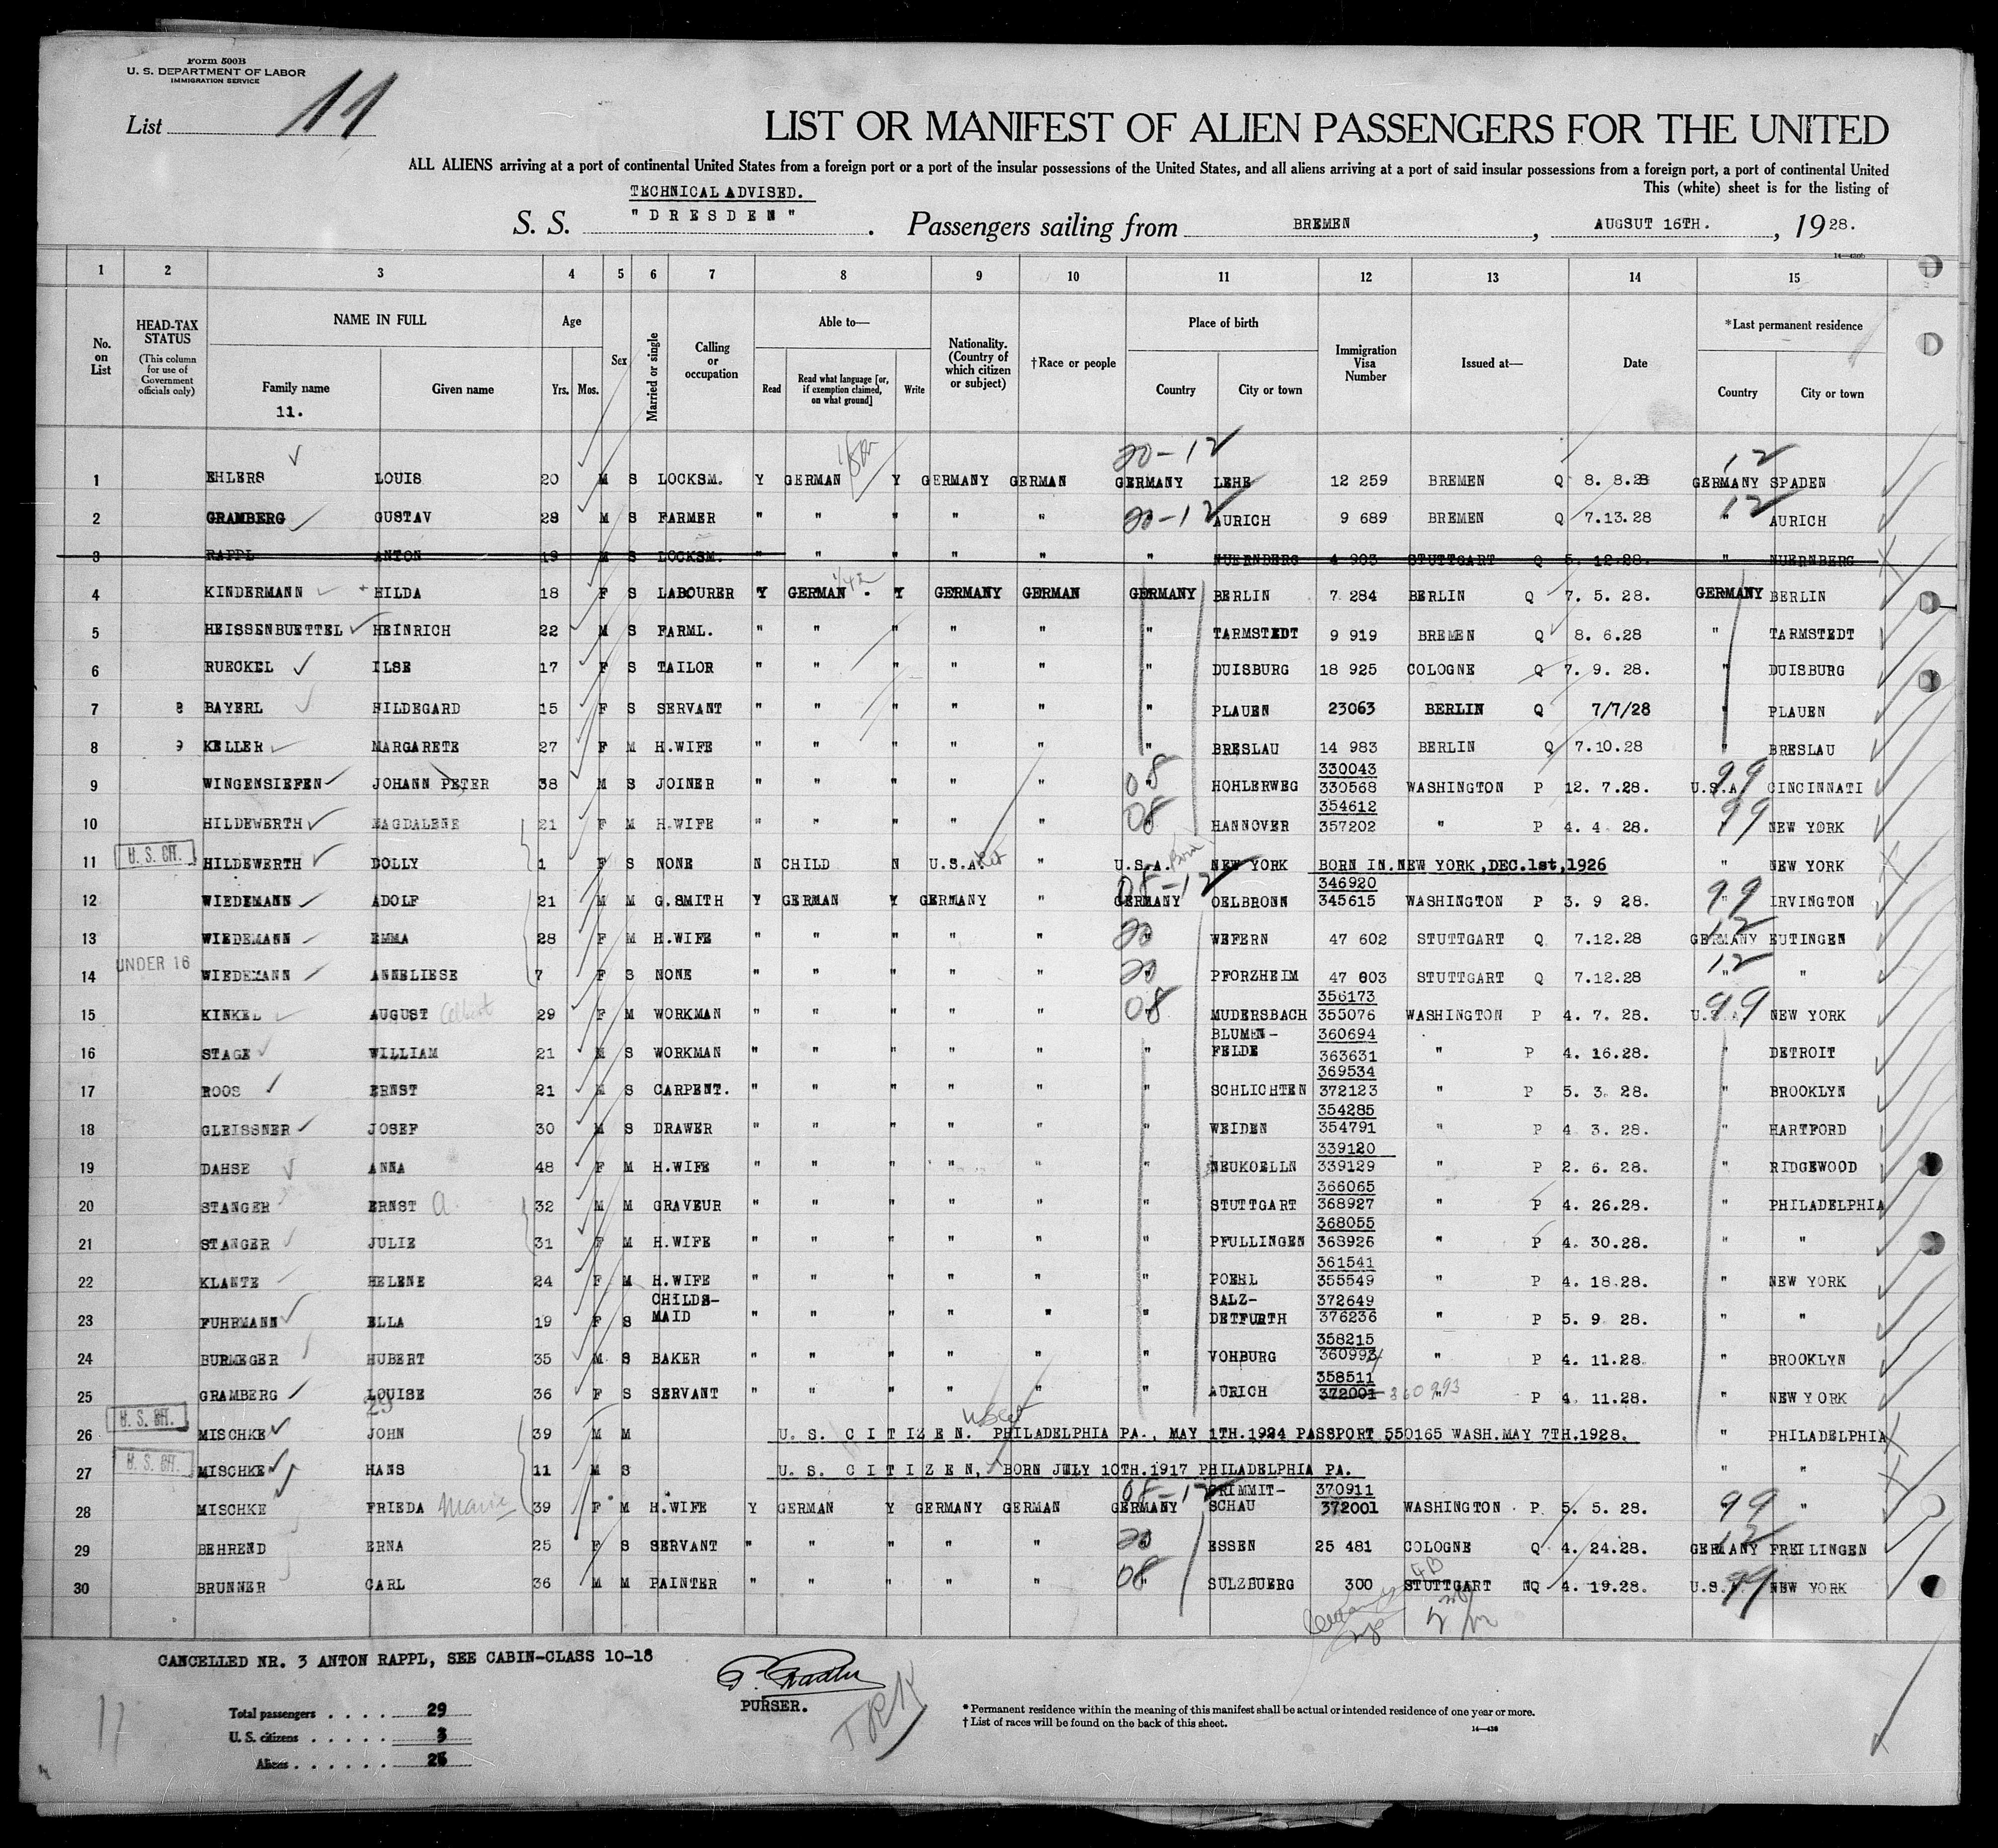 Form 500B
U. S. DEPARTMENT OF LABOR
IMMIGRATION SERVICE
List 11
LIST OR MANIFEST OF ALIEN PASSENGERS FOR THE UNITED
ALL ALIENS arriving at a port of continental United States from a foreign port or a port of the insular possessions of the United States, and all aliens arriving at a port of said insular possessions from a foreign port, a port of continental United
This (white) sheet is for the listing of
TECHNICAL ADVISED.
S. S. "DRESDEN". Passengers sailing from BREMEN, AUGSUT 16TH., 1928.
14—430b
1 2 3 4 5 6 7 8 9 10 11 12 13 14 15
No. on List
HEAD-TAX STATUS (This column for use of Government officials only)
NAME IN FULL Family name Given name
11.
Age Yrs. Mos.
Sex
Married or single
Calling or occupation
Able to— Read Read what language [or, if exemption claimed, on what ground] Write
Nationality. (Country of which citizen or subject)
†Race or people
Place of birth Country City or town
Immigration Visa Number
Issued at—
Date
*Last permanent residence Country City or town
20-12 12
1 EHLERS LOUIS 20 M S LOCKSM. Y GERMAN Y GERMANY GERMAN GERMANY LEHE 12 259 BREMEN Q 8. 8.28 GERMANY SPADEN
2 GRAMBERG GUSTAV 28 M S FARMER " " " " " 20-12 AURICH 9 689 BREMEN Q 7.13.28 12 " AURICH
3 RAPPL ANTON 19 M S LOCKSM. " " " " " " NUERNBERG 4 903 STUTTGART Q 5. 12.28. " NUERNBERG
4 KINDERMANN HILDA 18 F S LABOURER Y GERMAN. Y GERMANY GERMAN GERMANY BERLIN 7 284 BERLIN Q 7. 5. 28. GERMANY BERLIN
5 HEISSENBUETTEL HEINRICH 22 M S FARML. " " " " " " TARMSTEDT 9 919 BREMEN Q 8. 6.28 " TARMSTEDT
6 RUECKEL ILSE 17 F S TAILOR " " " " " " DUISBURG 18 925 COLOGNE Q 7. 9. 28. " DUISBURG
7 8 BAYERL HILDEGARD 15 F S SERVANT " " " " " " PLAUEN 23063 BERLIN Q 7/7/28 " PLAUEN
8 9 KELLER MARGARETE 27 F M H.WIFE " " " " " " BRESLAU 14 983 BERLIN Q 7.10.28 " BRESLAU
330043
9 WINGENSIEFEN JOHANN PETER 38 M S JOINER " " " " " 08 HOHLERWEG 330568 WASHINGTON P 12. 7.28. U.S.A. 99 CINCINNATI
354612
10 HILDEWERTH MAGDALENE 21 F M H.WIFE " " " " " 08 HANNOVER 357202 " P 4. 4 28. 99 NEW YORK
11 U. S. CIT. HILDEWERTH DOLLY 1 F S NONE N CHILD N U.S.A. " U.S.A. Born NEW YORK BORN IN.NEW YORK,DEC.1st,1926 " NEW YORK
08-12 346920
12 WIEDEMANN ADOLF 21 M M G.SMITH Y GERMAN Y GERMANY " GERMANY OELBRONN 345615 WASHINGTON P 3. 9 28. 99 " IRVINGTON
13 WIEDEMANN EMMA 28 F M H.WIFE " " " " " 20 WEFERN 47 602 STUTTGART Q 7.12.28 12 GERMANY EUTINGEN
UNDER 16
14 WIEDEMANN ANNELIESE 7 F S NONE " " " " " 20 PFORZHEIM 47 603 STUTTGART Q 7.12.28 12 " "
356173
15 KINKEL AUGUST 29 F M WORKMAN " " " " " 08 MUDERSBACH 355076 WASHINGTON P 4. 7. 28. U.S.A. 99 NEW YORK
BLUMEN- 360694
16 STAGE WILLIAM 21 M S WORKMAN " " " " " " FELDE 363631 " P 4. 16.28. " DETROIT
369534
17 ROOS ERNST 21 M S CARPENT. " " " " " " SCHLICHTEN 372123 " P 5. 3. 28. " BROOKLYN
354285
18 GLEISSNER JOSEF 30 M S DRAWER " " " " " " WEIDEN 354791 " P 4 3. 28. " HARTFORD
339120
19 DAHSE ANNA 48 F M H.WIFE " " " " " " NEUKOELLN 339129 " P 2. 6. 28. " RIDGEWOOD
366065
20 STANGER ERNST A. 32 M M GRAVEUR " " " " " " STUTTGART 368927 " P 4. 26.28. " PHILADELPHIA
368055
21 STANGER JULIE 31 F M H.WIFE " " " " " " PFULLINGEN 368926 " P 4. 30.28. " "
361541
22 KLANTE HELENE 24 F M H.WIFE " " " " " " POEHL 355549 " P 4. 18.28. " NEW YORK
CHILDS- SALZ- 372649
23 FUHRMANN ELLA 19 F S MAID " " " " " " DETFURTH 376236 " P 5. 9 28. " "
358215
24 BURMEGER HUBERT 35 M S BAKER " " " " " " VOHBURG 360993 " P 4. 11.28. " BROOKLYN
358511
25 GRAMBERG LOUISE 36 F S SERVANT " " " " " " AURICH 372001 360993 " P 4. 11.28. " NEW YORK
23
26 U. S. CIT. MISCHKE JOHN 39 M M U. S. CITIZEN. PHILADELPHIA PA., MAY 1TH.1924 PASSPORT 550165 WASH.MAY 7TH.1928. " PHILADELPHIA
27 U. S. CIT. MISCHKE HANS 11 M S U. S. CITIZEN, BORN JULY 10TH.1917 PHILADELPHIA PA. " "
08-12 CRIMMIT- 370911
28 MISCHKE FRIEDA Marie 39 F M H.WIFE Y GERMAN Y GERMANY GERMAN GERMANY SCHAU 372001 WASHINGTON P. 5. 5. 28. 99 "
29 BEHREND ERNA 25 F S SERVANT " " " " " 20 ESSEN 25 481 COLOGNE Q 4. 24.28. 12 GERMANY FREILINGEN
30 BRUNNER CARL 36 M M PAINTER " " " " " 08 SULZBUERG 300 STUTTGART NQ 4. 19.28. U.S.A. 99 NEW YORK
CANCELLED NR. 3 ANTON RAPPL, SEE CABIN-CLASS 10-18
PURSER.
Total passengers . . . . 29
U. S. citizens . . . . . 3
Aliens . . . . . . 26
11
* Permanent residence within the meaning of this manifest shall be actual or intended residence of one year or more.
† List of races will be found on the back of this sheet.
14—430